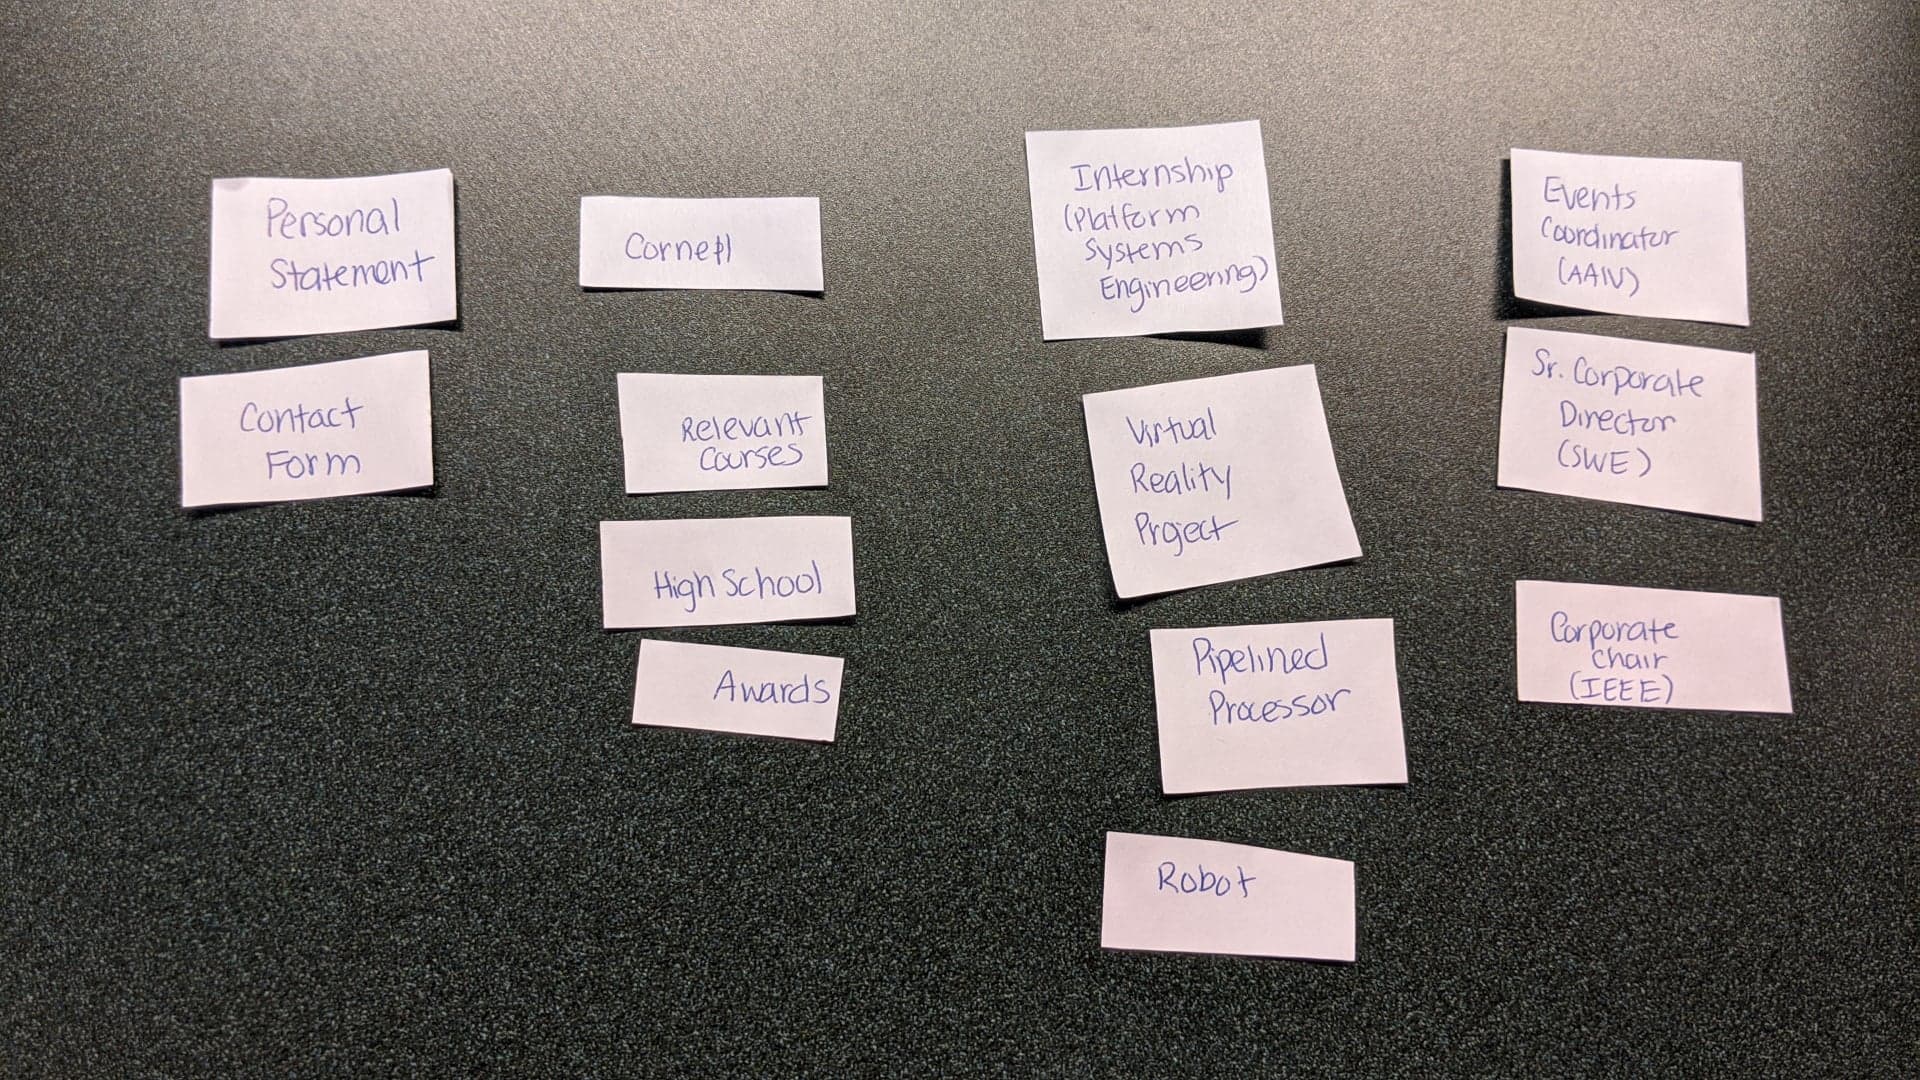 Personal
Statement
Contact
Form
Cornell
Relevant
Courses
High School
Awards
Internship
(Platform
Systems
Engineering)
Virtual
Reality
Project
Pipelined
Processor
Robot
Events
Coordinator
(AAIV)
Sr. Corporate
Director
(SWE)
Corporate
Chair
(IEEE)